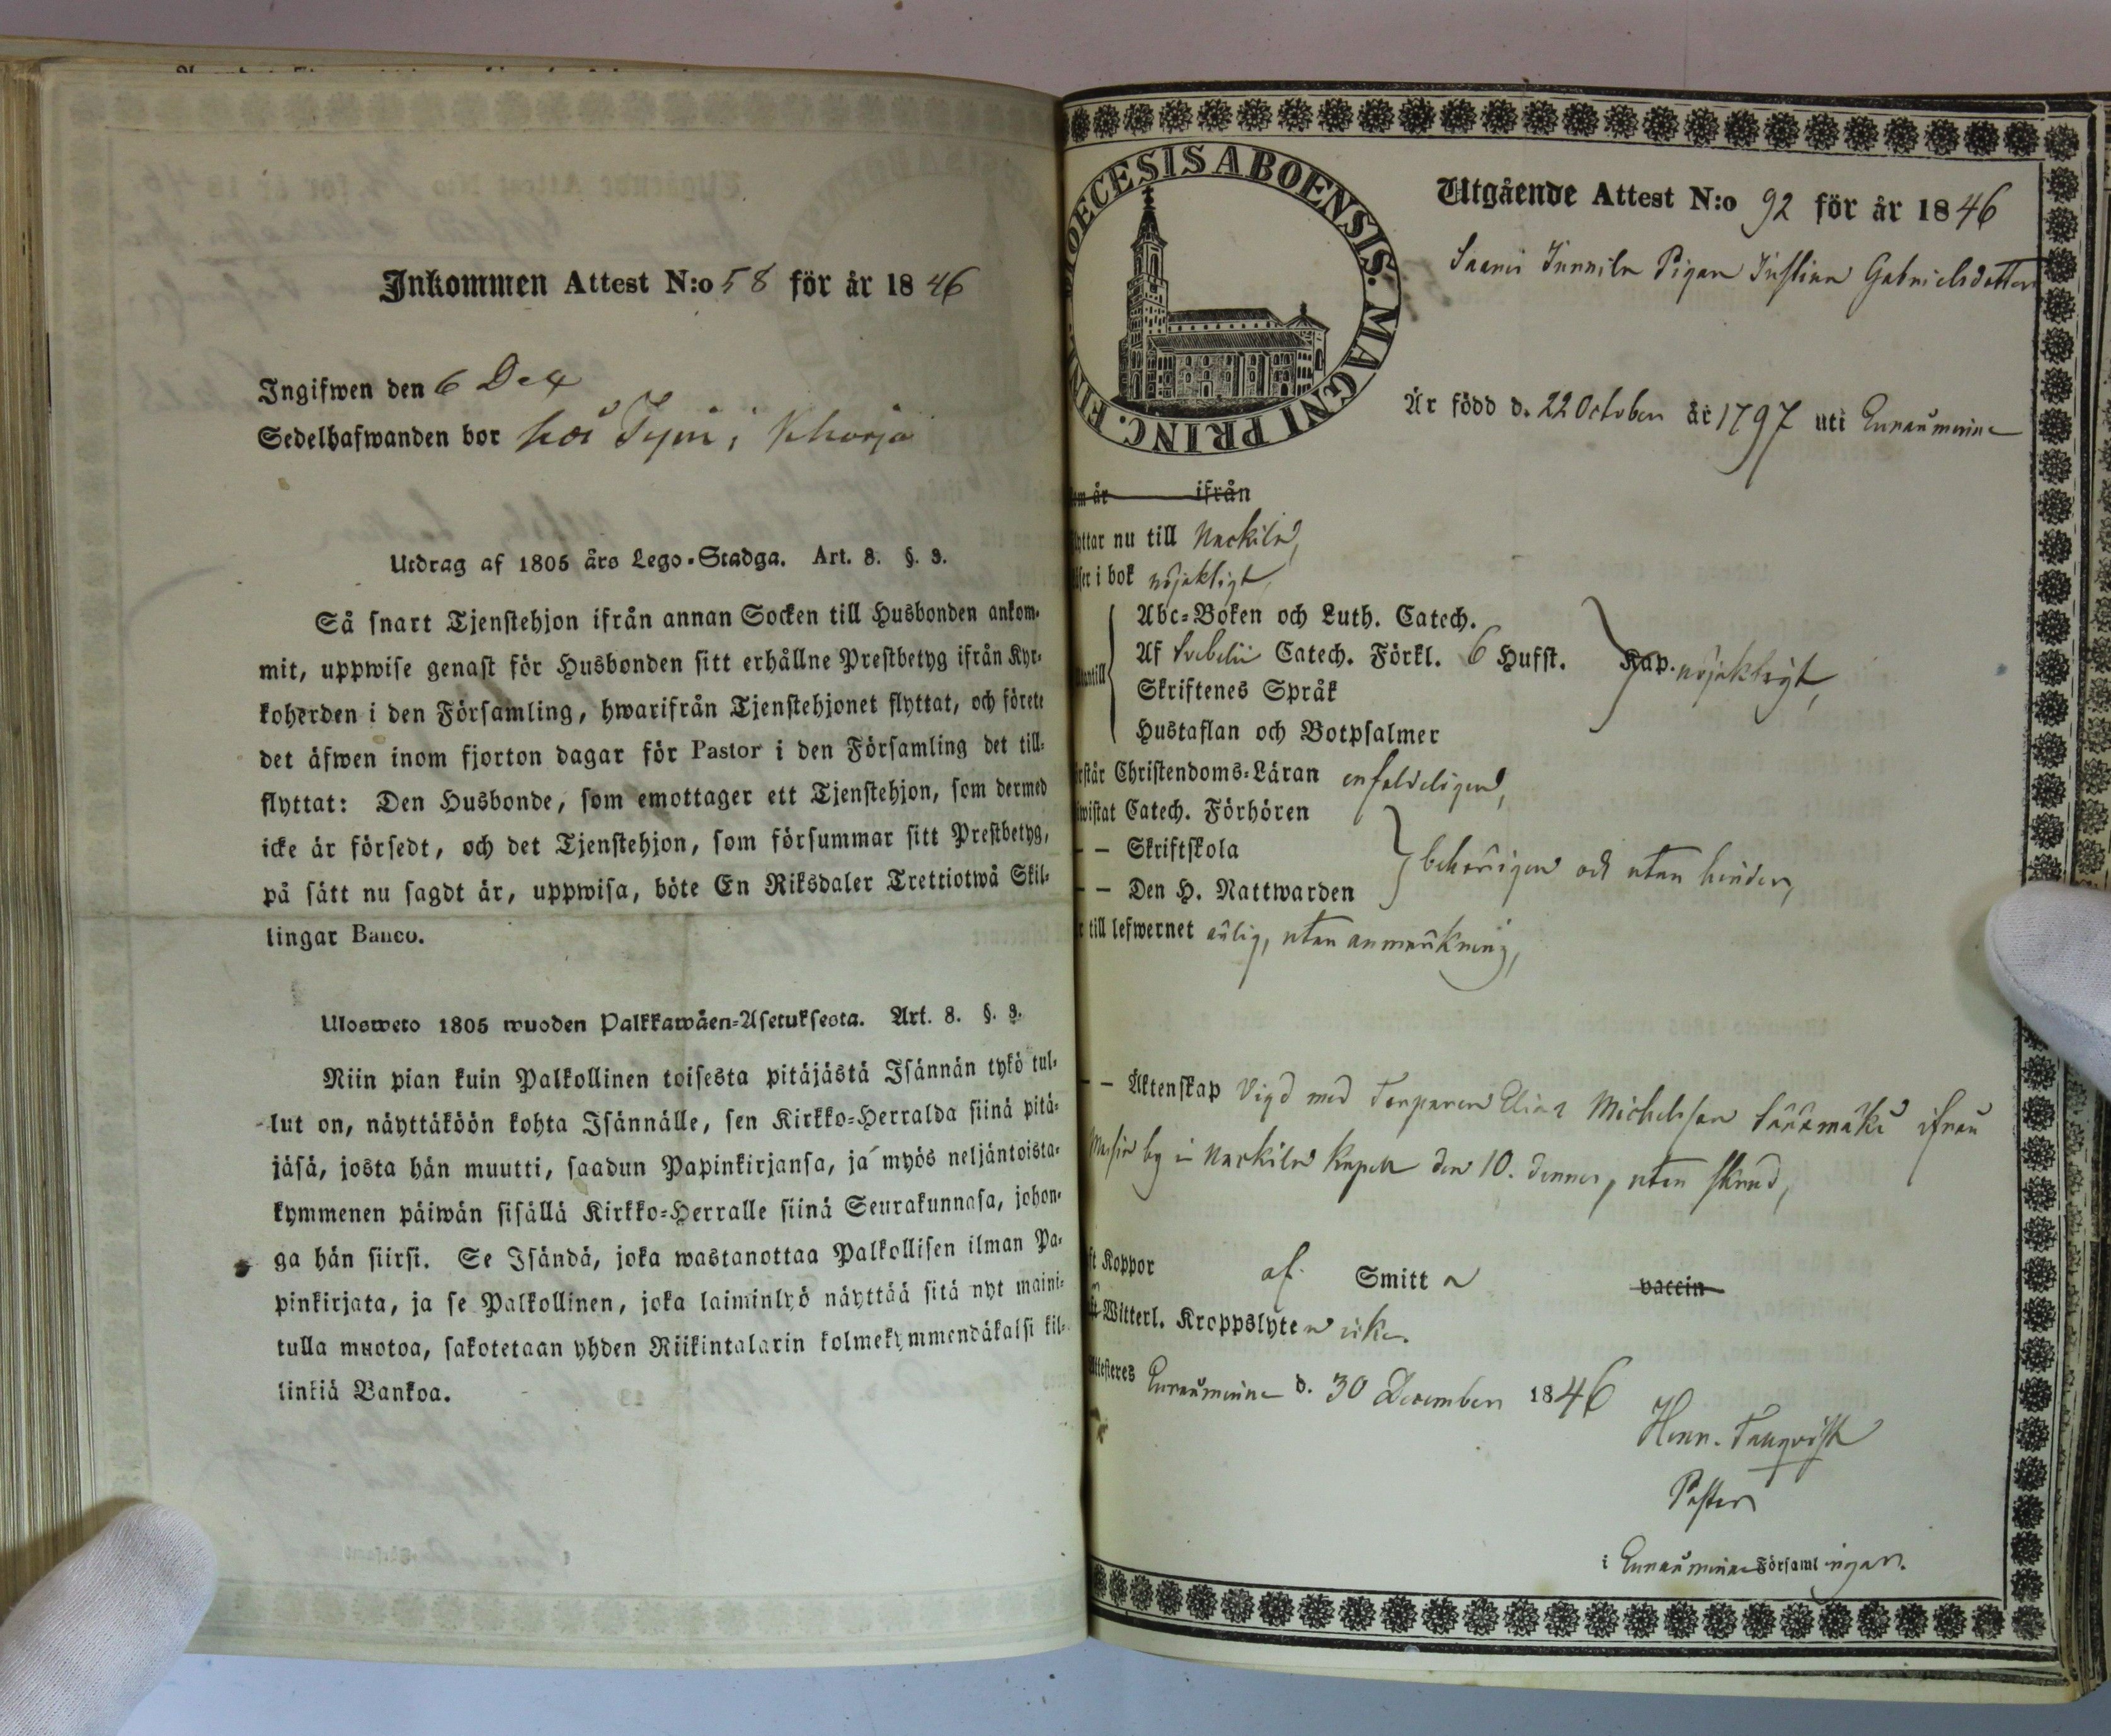 Inkommen Attest N:o 58 för år 1846
Ingifwen den 6 Dec
Sedelhafwanden bor hos i
Utdrag af 1805 års Lego-Stadga. Art. 8. §. 3.
Så snart Tjenstehjon ifrån annan Socken till Husbonden ankom-
mit, uppwise genast för Husbonden sitt erhållne Prestbetyg ifrån Kyr-
koherden i den Församling, hwarifrån Tjenstehjonet flyttat, och förete
det äfwen inom fjorton dagar för Pastor i den Församling det till-
flyttat: Den Husbonde, som emottager ett Tjenstehjon, som dermed
icke är försedt, och det Tjenstehjon, som försummar sitt Prestbetyg,
på sätt nu sagdt är, uppwisa, böte En Riksdaler Trettiotwå Skil-
lingar Banco.
Ulosweto 1805 wuoden Palkkawäen-Asetuksesta. Art. 8. §. 3.
Niin pian kuin Palkollinen toisesta pitäjästä Isännän tykö tul-
lut on, näyttäköön kohta Isännälle, sen Kirkko-Herralda siinä pitä-
jäsä, josta hän muutti, saadun Papinkirjansa, ja myös neljäntoista-
kymmenen päiwän sisällä Kirkko-Herralle siinä Seurakunnasa, johon-
ga hän siirsi. Se Isändä, joka wastanottaa Palkollisen ilman Pa-
pinkirjata, ja se Palkollinen, joka laiminlyö näyttää sitä nyt maini-
tulla muotoa, sakotetaan yhden Riikintalarin kolmekymmendäkaksi kil-
linkiä Bankoa.
DIOECESIS ABOENSIS. MAGNI PRINC. FIN
Utgående Attest N:o 92 för år 1846
Pigan Justina Gabrielsdotter
Är född d. 22 October år 1797 uti Euraåminne
om år ifrån
yttar nu till Nackila,
äser i bok nöjaktigt,
Abc-Boken och Luth. Catech.
Af Svebelii Catech. Förkl. 6 Hufst. Kap. nöjaktigt,
antill
Skriftenes Språk
Hustaflan och Botpsalmer
rstår Christendoms-Läran enfaldeligen,
wistat Catech. Förhören
- - Skriftskola
behörigen och utan hinder,
- - Den H. Nattwarden
r till lefwernet ärlig, utan anmärkning,
- - Äktenskap Vigd med Torparen Elias Michelsson ifrån
by i Nackila Kapell den 10. dennes, utan skrud,
ft Koppor af Smitta vaccin
Witterl. Kroppslyten icke.
Attesteres Euraåminne d. 30 December 1846
Henr. Tallqvist
Pastor
i Euraåminne Församlingar.